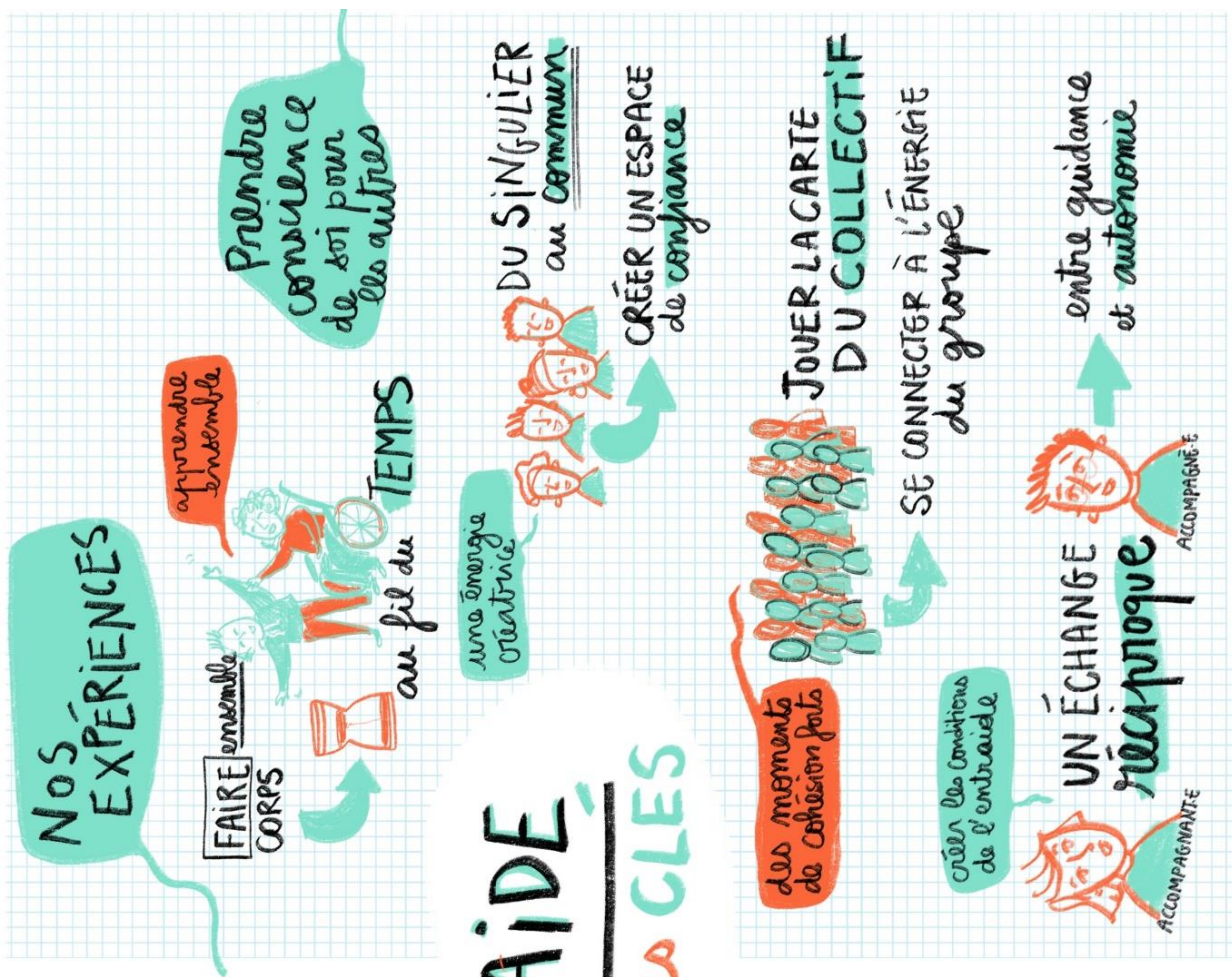 NOS
EXPÉRIENCES
apprendre
ensemble
FAIRE ensemble
CORPS
au fil du TEMPS
Prendre
conscience
de soi pour
les autres
une énergie
créatrice
DU SINGULIER
au commun
CRÉER UN ESPACE
de confiance
AIDE
CLÉS
des moments
de cohésion forts
JOUER LA CARTE
DU COLLECTIF
SE CONNECTER À L'ÉNERGIE
du groupe
créer les conditions
de l'entraide
UN ÉCHANGE
réciproque
ACCOMPAGNANT·E
ACCOMPAGNÉ·E
entre guidance
et autonomie